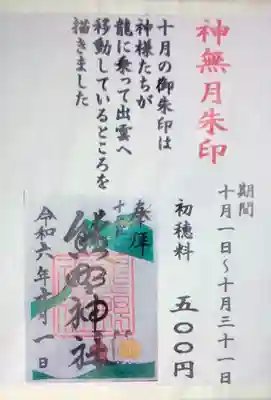 神無月朱印
期間
十月一日～十月三十一日
初穂料 五〇〇円
十月の御朱印は
神様たちが
龍に乗って出雲へ
移動しているところを
描きました
奉拝
熊野神社
令和六年十月一日